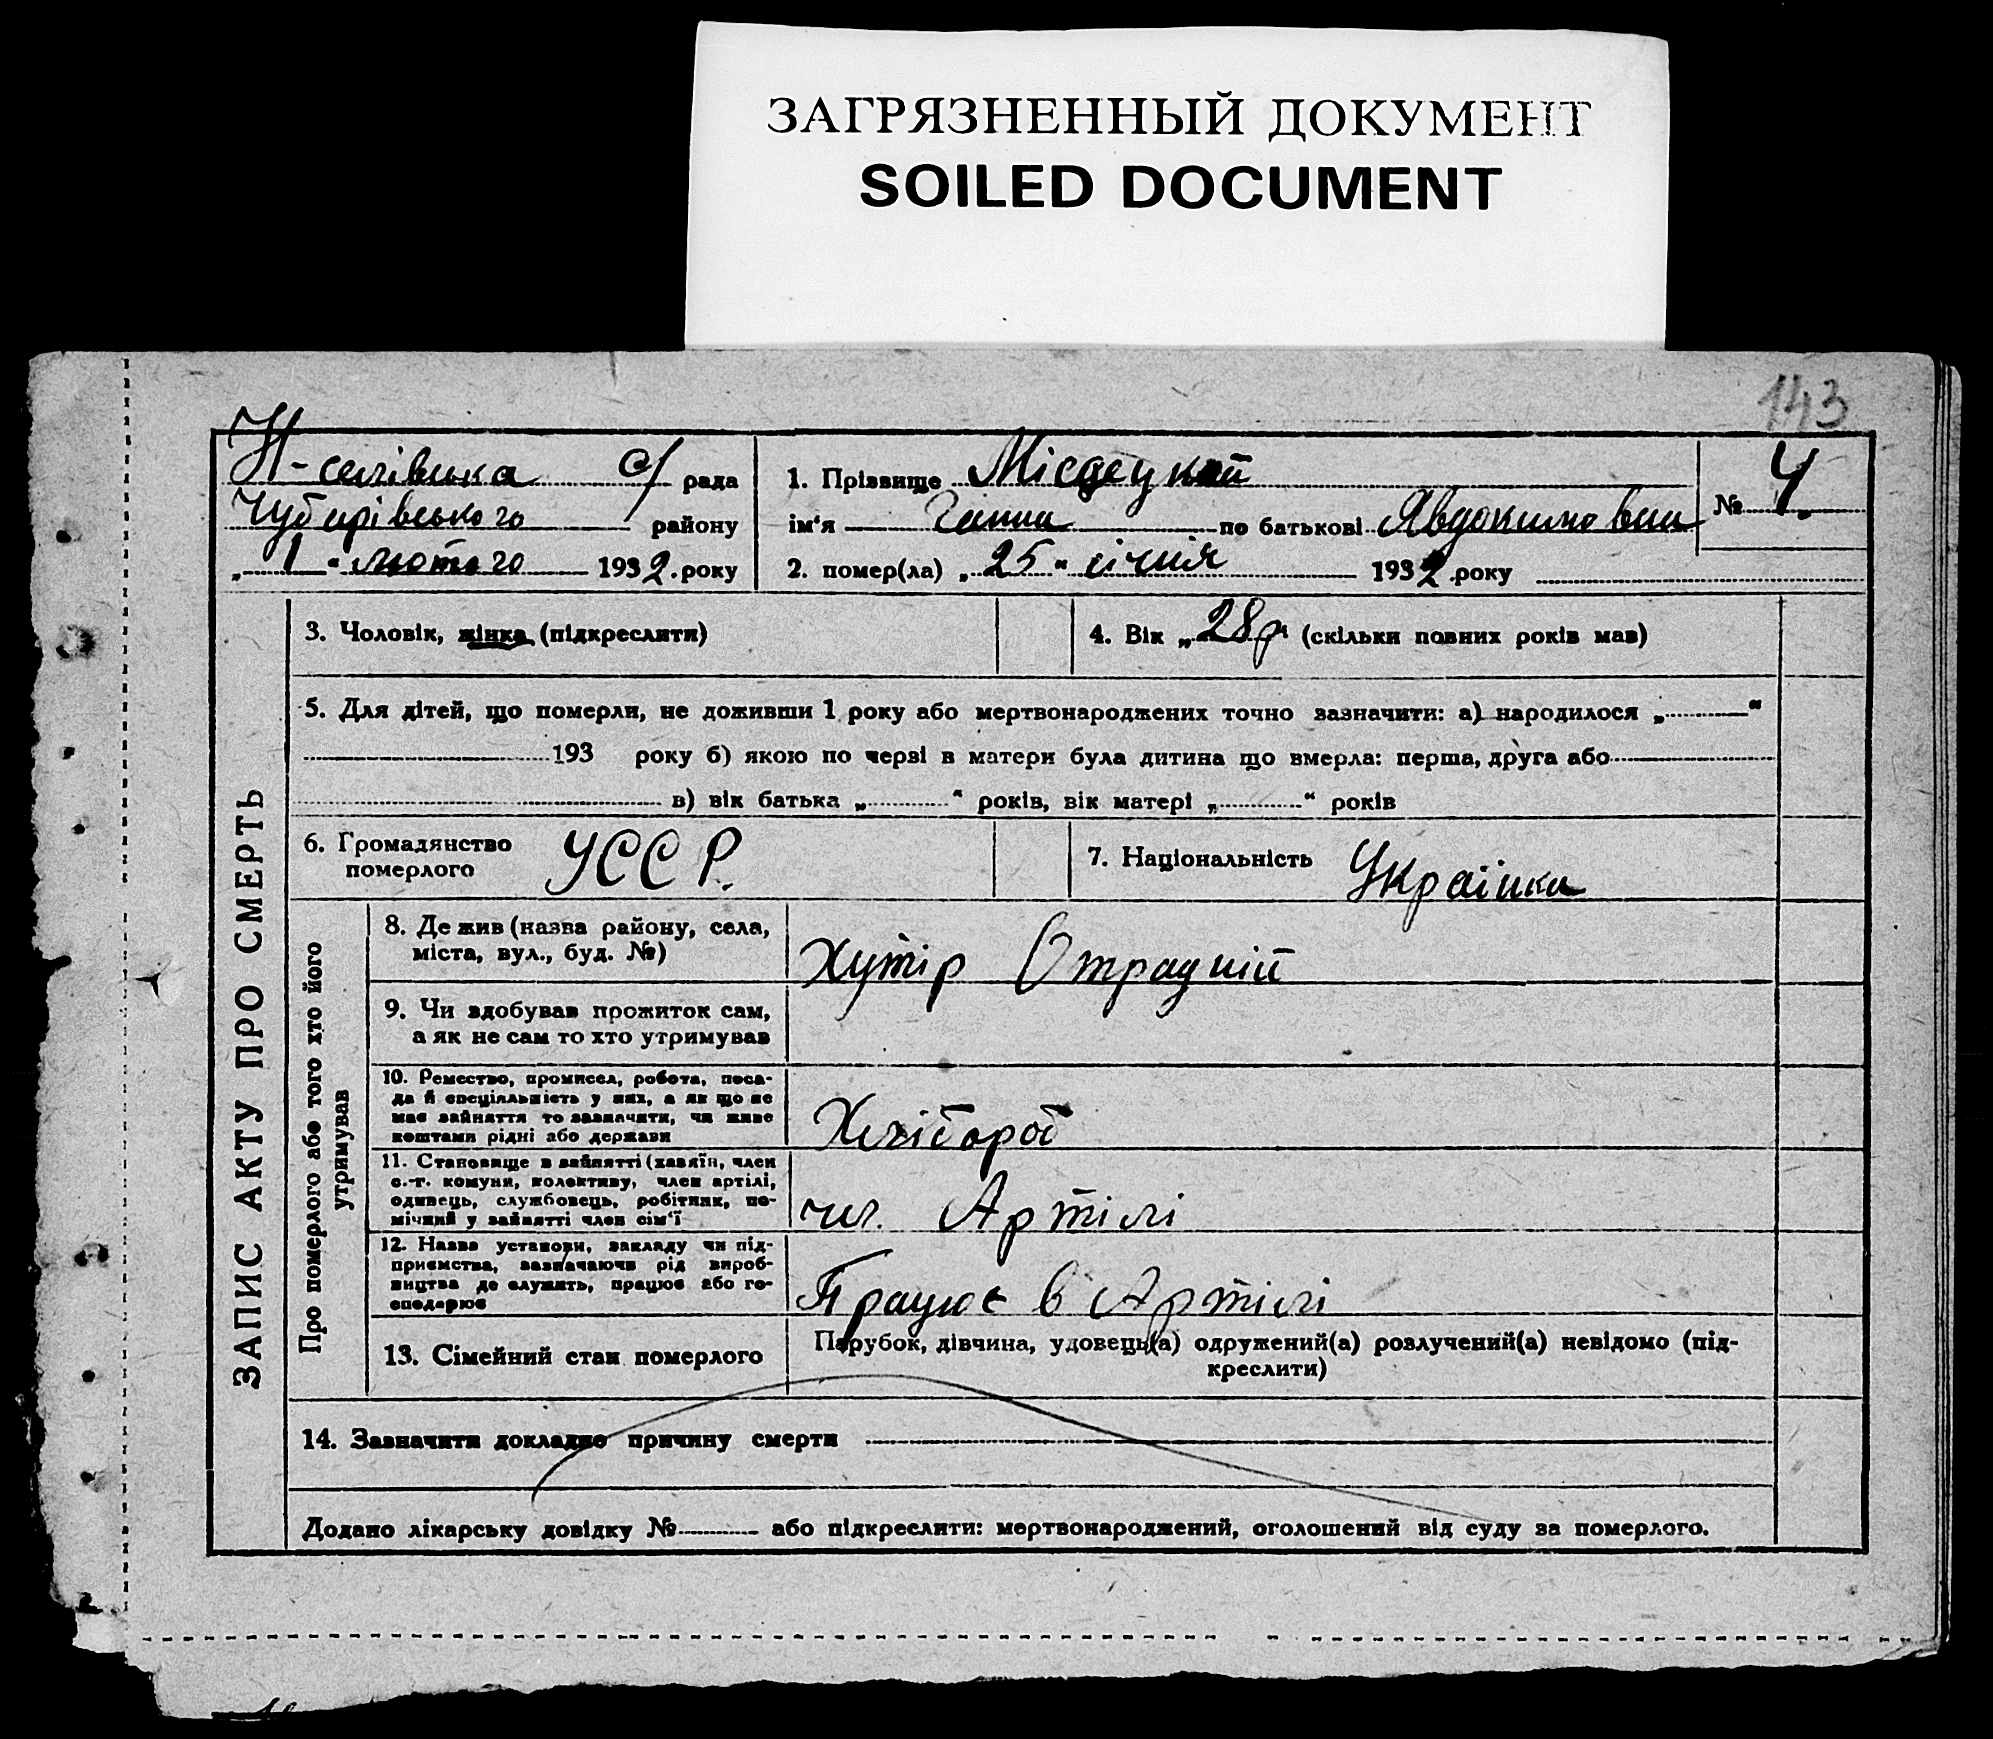 ЗАГРЯЗНЕННЫЙ ДОКУМЕНТ
SOILED DOCUMENT
143
Н-селівська с/ рада
Чубарівського району
„ 1 “ лютого 1932. року
1. Прізвище Місяецкий
ім'я Ганна по батькові Явдокимовна
№ 4.
2. помер(ла) „ 25 “ січнія 1932 .року
ЗАПИС АКТУ ПРО СМЕРТЬ
3. Чоловік, жінка (підкреслити)
4. Вік „ 28 р. (скільки повних років мав)
5. Для дітей, що померли, не доживши 1 року або мертвонароджених точно зазначити: а) народилося „ “
193 року б) якою по черзі в матери була дитина що вмерла: перша, друга або
в) вік батька „ “ років, вік матері „ “ років
6. Громадянство
померлого УССР.
7. Національність Українка
Про померлого або того хто його
утримував
8. Де жив (назва району, села,
міста, вул., буд. №) Хутір Отрадній
9. Чи здобував прожиток сам,
а як не сам то хто утримував
10. Ремество, промисел, робота, поса-
да й спеціяльність у них, а як що не
має зайняття то зазначити, чи живе
коштами рідні або держави Хлібороб
11. Становище в зайнятті (хазяїн, член
с.-г. комуни, колективу, член артілі,
одинець, службовець, робітник, по-
мічний у зайнятті член сім'ї чл. Артілі
12. Назва установи, закладу чи під-
приємства, зазначаючи рід вироб-
ництва де служить, працює або го-
сподарює Працює в Артілі
13. Сімейний стан померлого
Парубок, дівчина, удовець(а) одружений(а) розлучений(а) невідомо (під-
креслити)
14. Зазначити докладно причину смерти
Додано лікарську довідку № або підкреслити: мертвонароджений, оголошений від суду за померлого.